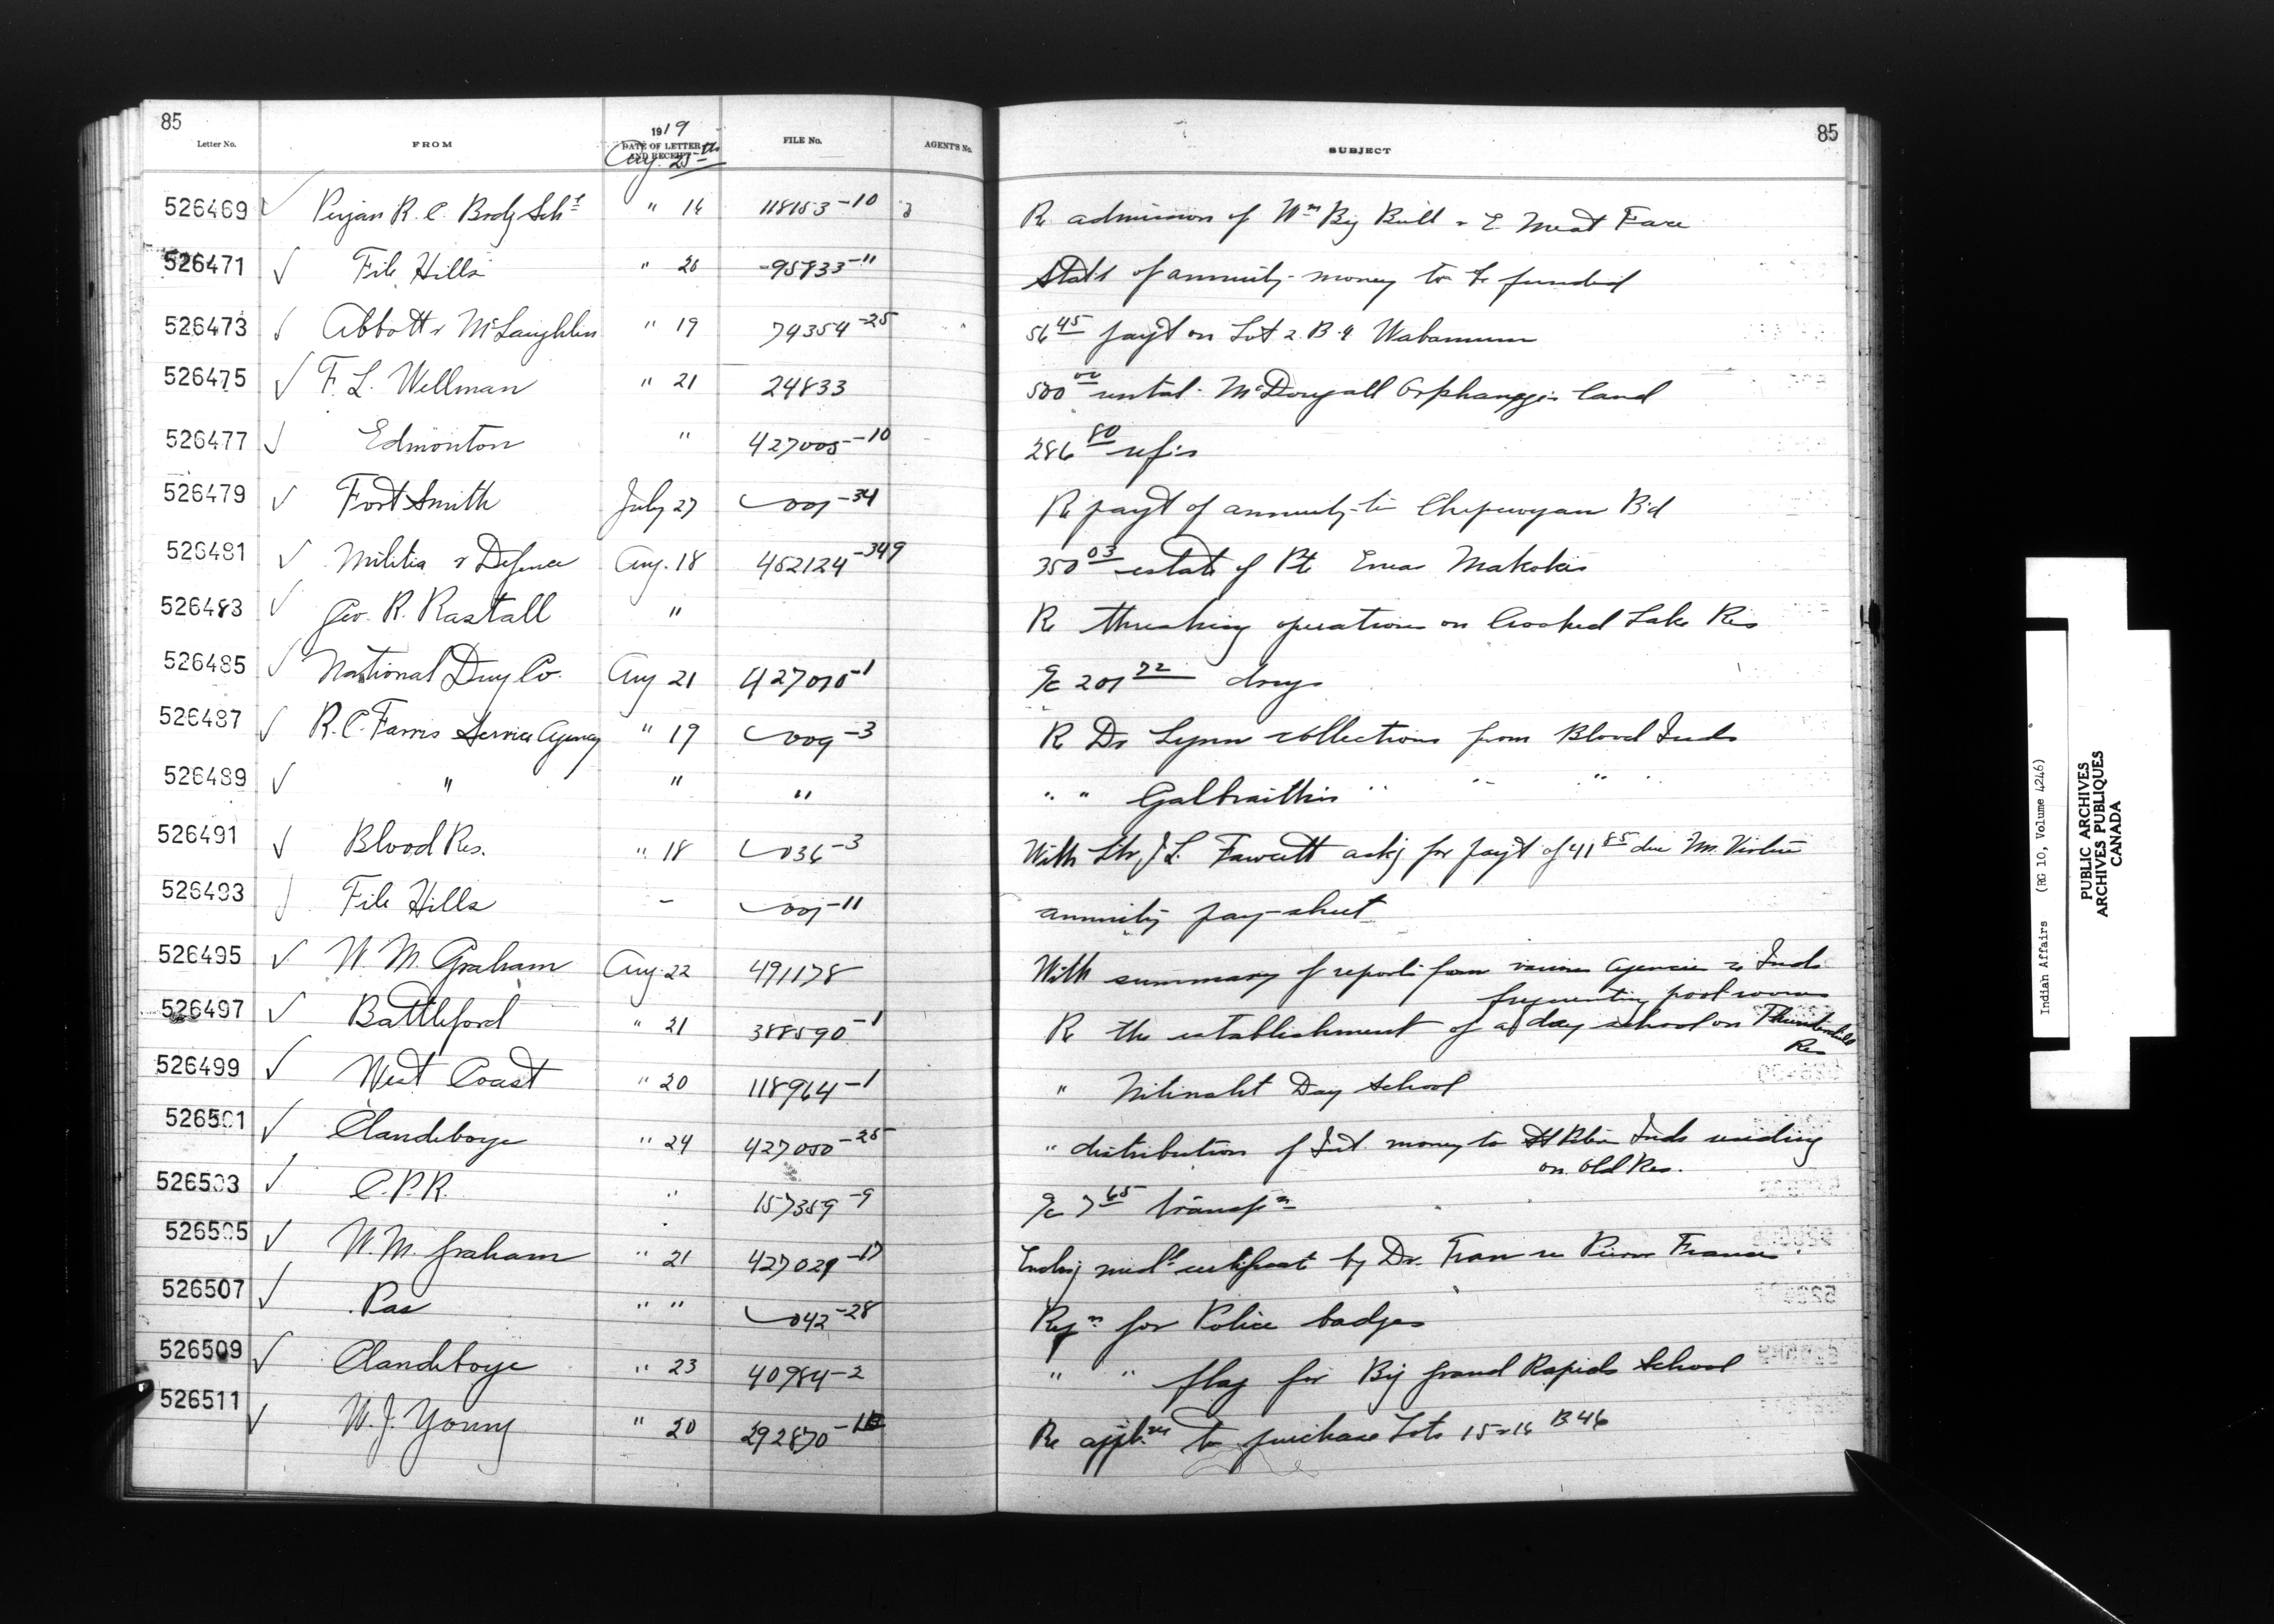 85
1919
Letter No. FROM DATE OF LETTER AND RECEIPT FILE No. AGENT'S No. SUBJECT 85
Aug. 25th
526469 ✓ R. C. Bodg Schl " 16 118153-10 Re admission of Wm Big Bull & E. Meat Face
526471 ✓ File Hills " 20 -95833-11 Stat't of annuity money to be funded
526473 ✓ Abbott & McLaughlin " 19 74354-25 56 45 pay't on Lot 2 B 4 Wabamum
526475 ✓ F. L. Wellman " 21 24833 500 00 rental McDougall Orphanage land
526477 ✓ Edmonton " 427005-10 286 80
526479 ✓ Fort Smith July 27 001-34 Re pay't of annuity to Chipewyan Bd
526481 ✓ Militia & Defence Aug. 18 452124-349 350 03 estate of Pte Makokis
526483 ✓ Geo. R. Rastall " Re threshing operations on Crooked Lake Res
526485 ✓ National Drug Co. Aug 21 427010-1 a/c 201 72 drugs
526487 ✓ R. C. Farris Service Agency " 19 009-3 Re Dr Lynn collections from Blood Inds
526489 ✓ " " " " " Galbraith's " " "
526491 ✓ Blood Res. " 18 036-3 With ltr J. L. Fawcett askg for pay't of 41 85 due
526493 ✓ File Hills - 001-11 annuity pay-sheet
526495 ✓ W. M. Graham Aug. 22 491178 With summary of reports from various agencies re Inds
frequenting pool rooms
526497 ✓ Battleford " 21 388590-1 Re the establishment of a day school on Thunderchild
Res
526499 ✓ West Coast " 20 118964-1 " Nitinaht Day School
526501 ✓ Clandeboye " 24 427050-25 " distribution of Int. money to St Peters Inds residing
on old Res.
526503 ✓ C.P.R. " 157359-9 a/c 7 65 transpn
526505 ✓ W. M. Graham " 21 427029-17 Enclosg medl certificate by Dr. re Francis
526507 ✓ Pas " " 042-28 Reqn for Police badges
526509 ✓ Clandeboye " 23 40984-2 " " flag for Big Grand Rapids School
526511 ✓ W. J. Young " 20 292870 Re appln to purchase Lots 15 & 16 B 46
Indian Affairs (RG 10, Volume 4246)
PUBLIC ARCHIVES
ARCHIVES PUBLIQUES
CANADA